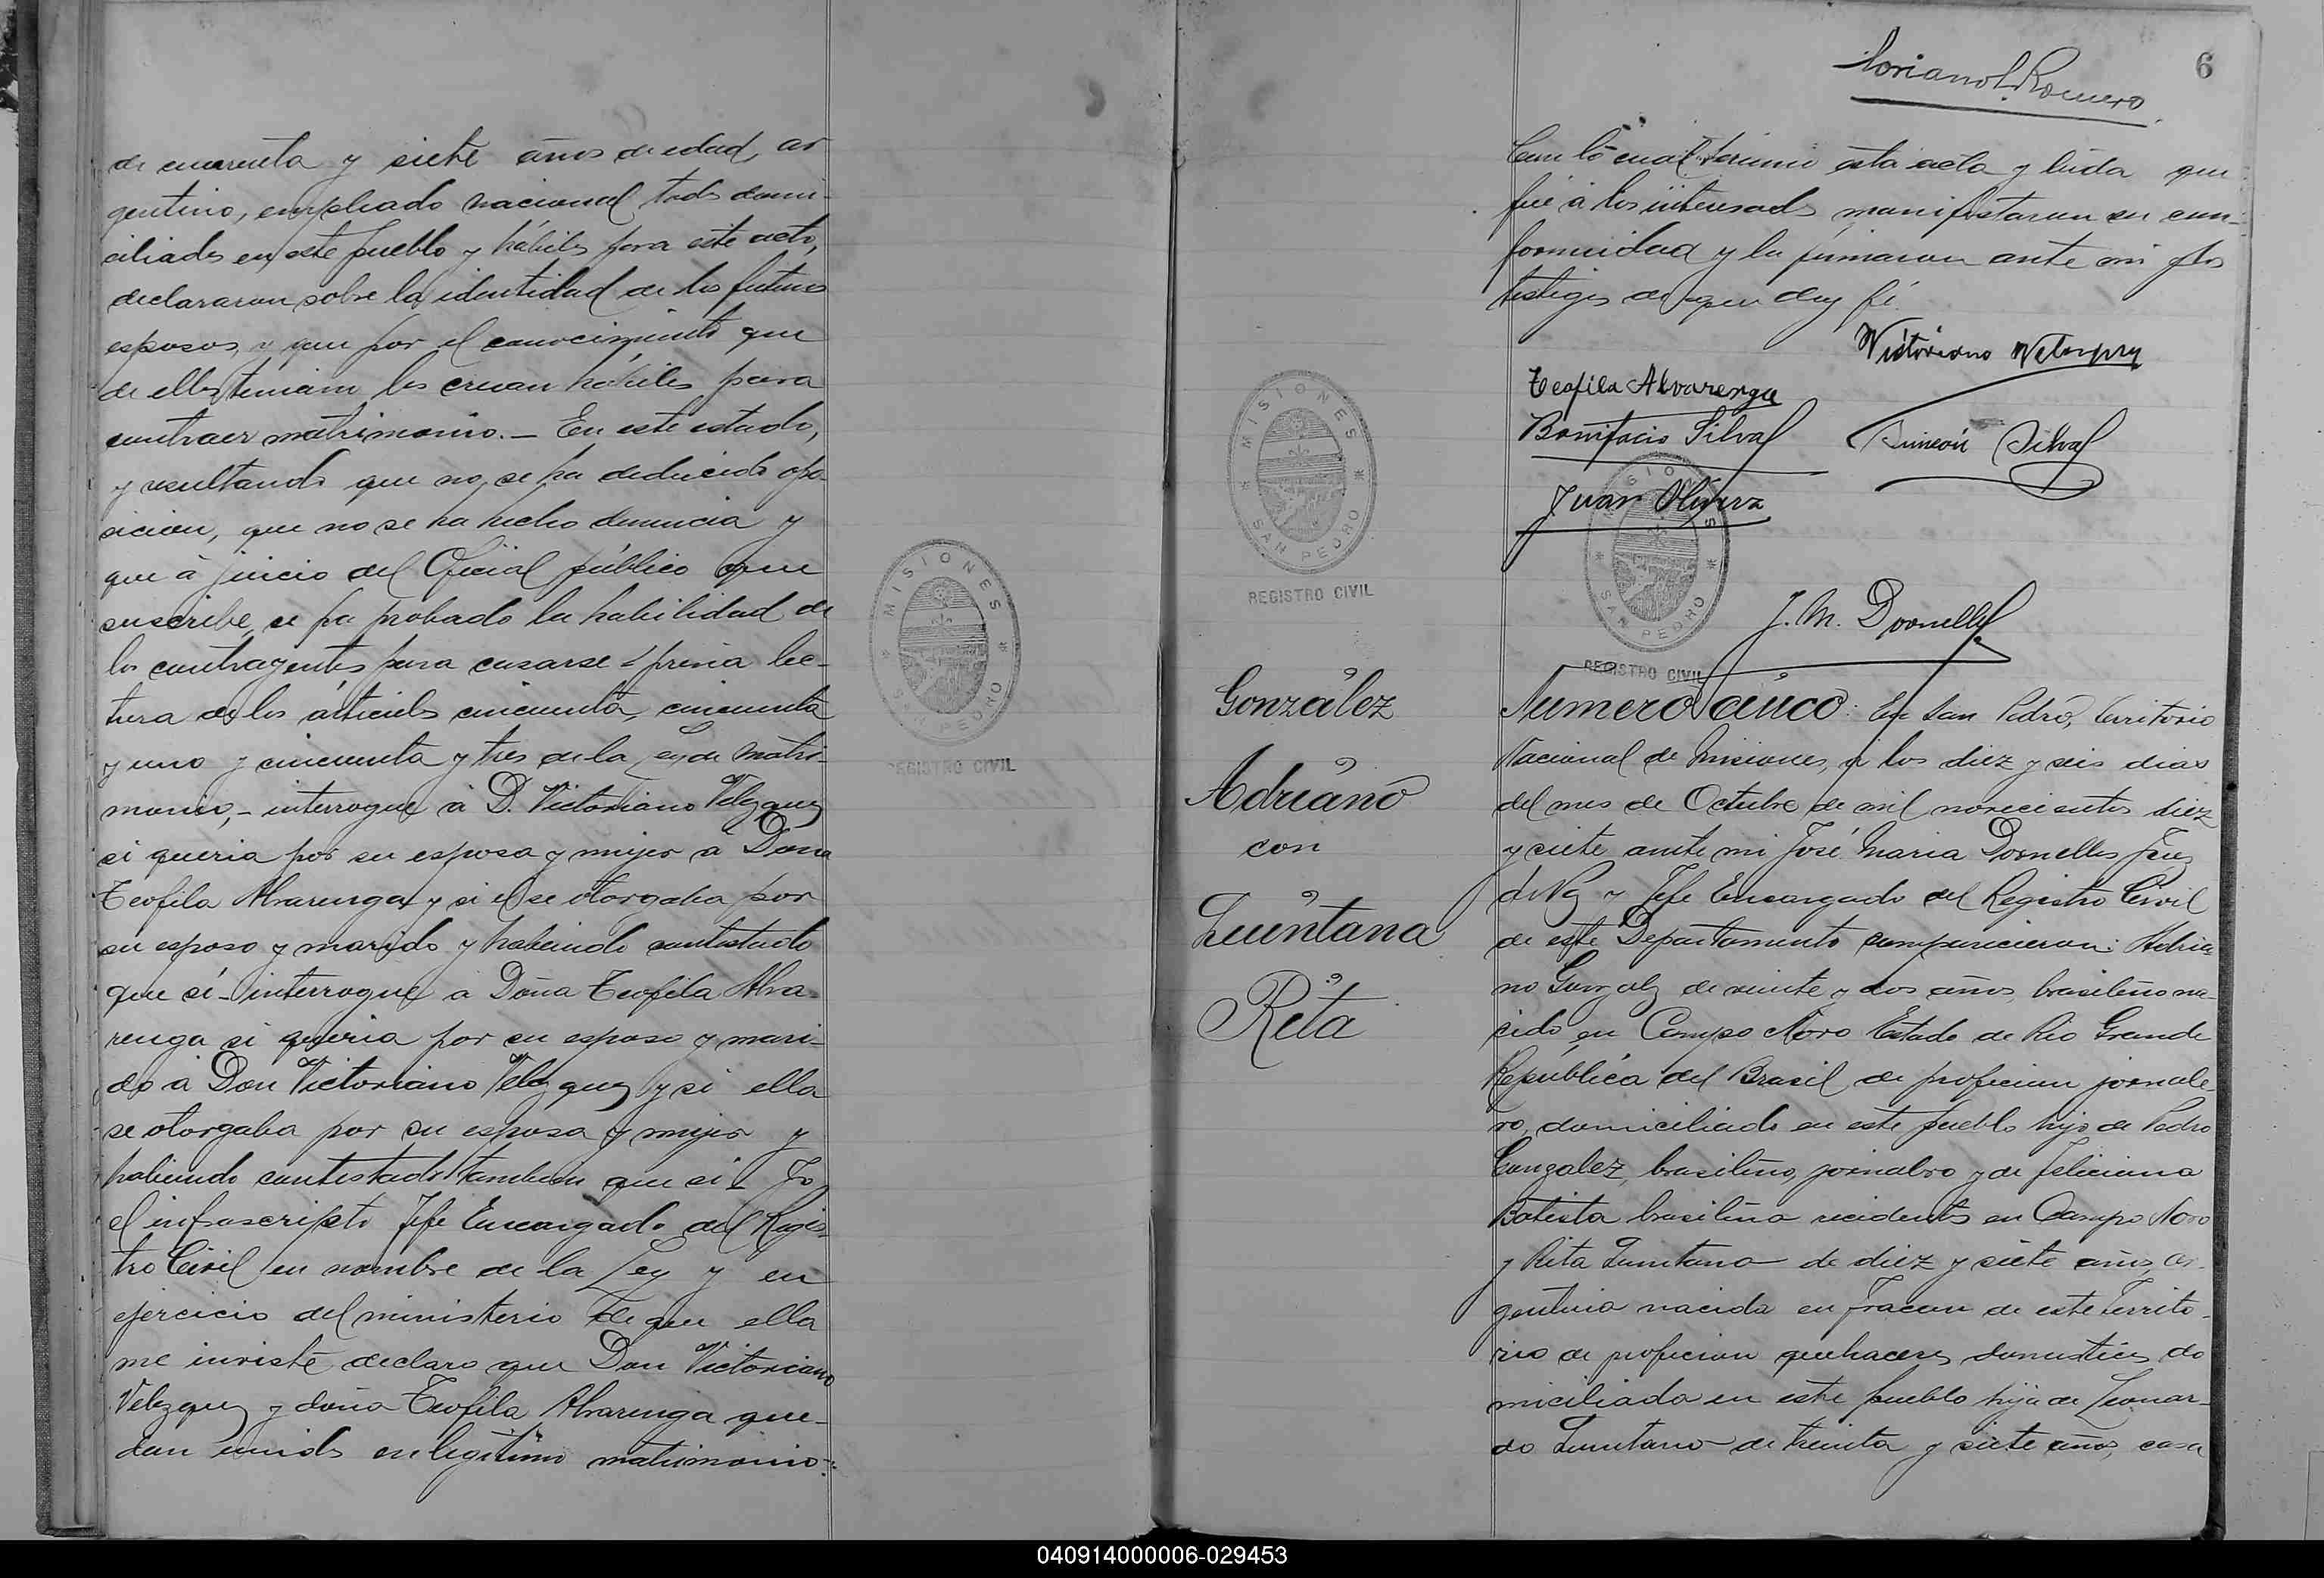 de cuarenta y siete años de edad, ar
gentino, empleado nacional todos domi-
ciliados en este pueblo y hábiles para este acto,
declararon sobre la identidad de los futuros
esposos, y que por el conocimiento que
de ellos tenian los creian hábiles para
contraer matrimonio.- En este estado,
y resultando que no se ha deducido opo-
sicion, que no se ha hecho denuncia y
que á juicio del Oficial público que
suscribe se ha probado la habilidad de
los contrayentes para casarse i previa lec-
tura de los articulos cincuenta, cincuenta
y uno y cincuenta y tres de la Ley de Matri-
monio,- interrogue á D. Victoriano Velazquez
si queria por su esposa y mujer a Doña
Teofila Alvarenga y si el se otorgaba por
su esposo y marido y habiendo contestado
que sí- interrogue a Doña Teofila Alva-
renga si queria por su esposo y mari-
do a Don Victoriano Velazquez y si ella
se otorgaba por su esposa y mujer y
habiendo contestado tambien que si- Yo
el infrascripto Jefe Encargado del Regis-
tro Civil en nombre de la Ley y en
ejercicio del ministerio de que ella
me inviste declaro que Don Victoriano
Velazquez y doña Teofila Alvarenga que-
dan unidos en legitimo matrimonio-:
MISIONES
SAN PEDRO
REGISTRO CIVIL
6
L. Romero
Con lo cual termino esta acta y leida que
fué á los interesados manifestaron su con-
formidad y la firmaron ante mi y los
testigos de que doy fé.
Victoriano
Teofila Alvarenga
Bonifacio Silva
Simeón Silva
Juan
MISIONES
SAN PEDRO
REGISTRO CIVIL
MISIONES
SAN PEDRO
REGISTRO CIVIL
J. M. Dornelles
González
Adriano
con
Quintana
Rita
Numero cinco: En San Pedro, Territorio
Nacional de Misiones, á los diez y seis dias
del mes de Octubre de mil novecientos diez
y siete ante mi José Maria Dornelles Juez
de Paz y Jefe Encargado del Registro Civil
de este Departamento comparecieron: Adria-
no Gonzalez de veinte y dos años, brasileño na-
cido en Campo Novo Estado de Rio Grande
República del Brasil, de profecion jornale-
ro, domiciliado en este pueblo hijo de Pedro
Gonzalez, brasileño, jornalero y de Feliciana
Batista brasileña recidentes en Campo Novo
y Rita Quintana de diez y siete años, ar-
gentina nacida en Fracran de este Territo-
rio de profecion quehaceres domesticos do
miciliada en este pueblo hija de Leonar-
do Quintana de treinta y siete años, casa
040914000006-029453